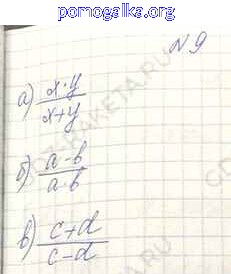 pomogalka.org
№ 9
а) x·y
x+y
б) a-b
a·b
в) c+d
c-d